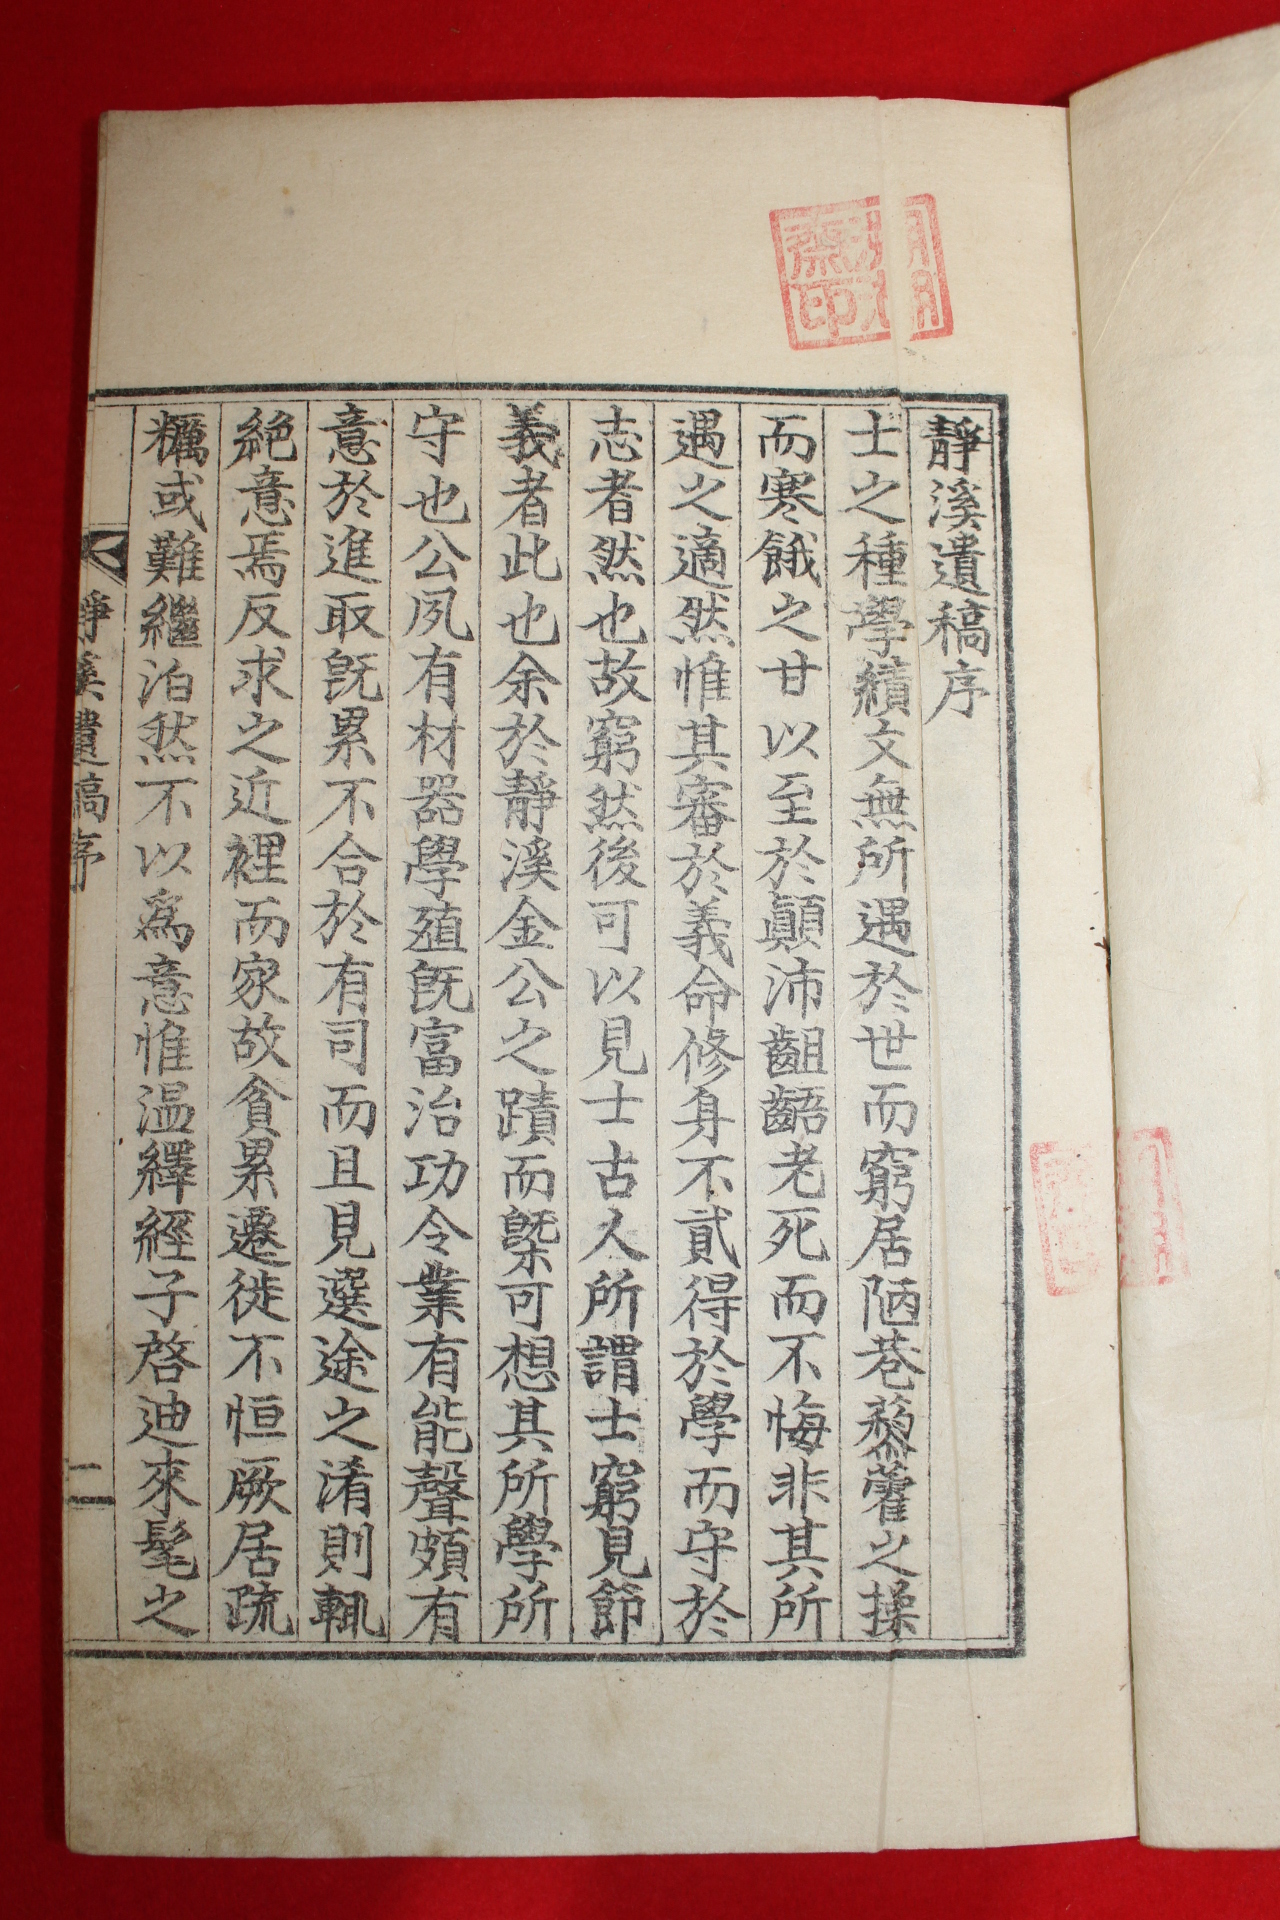 靜溪遺稿序
士之種學績文無所遇於世而窮居陋巷藜藿之操
而寒餓之甘以至於顚沛齟齬老死而不悔非其所
遇之適然惟其審於義命修身不貳得於學而守於
志者然也故窮然後可以見士古人所謂士窮見節
義者此也余於靜溪金公之蹟而槩可想其所學所
守也公夙有材器學殖旣富治功令業有能聲頗有
意於進取旣累不合於有司而且見選途之淆則輒
絕意焉反求之近裡而家故貧累遷徙不恒厥居疏
糲或難繼泊然不以爲意惟温繹經子啓迪來髦之
靜溪遺稿序
一